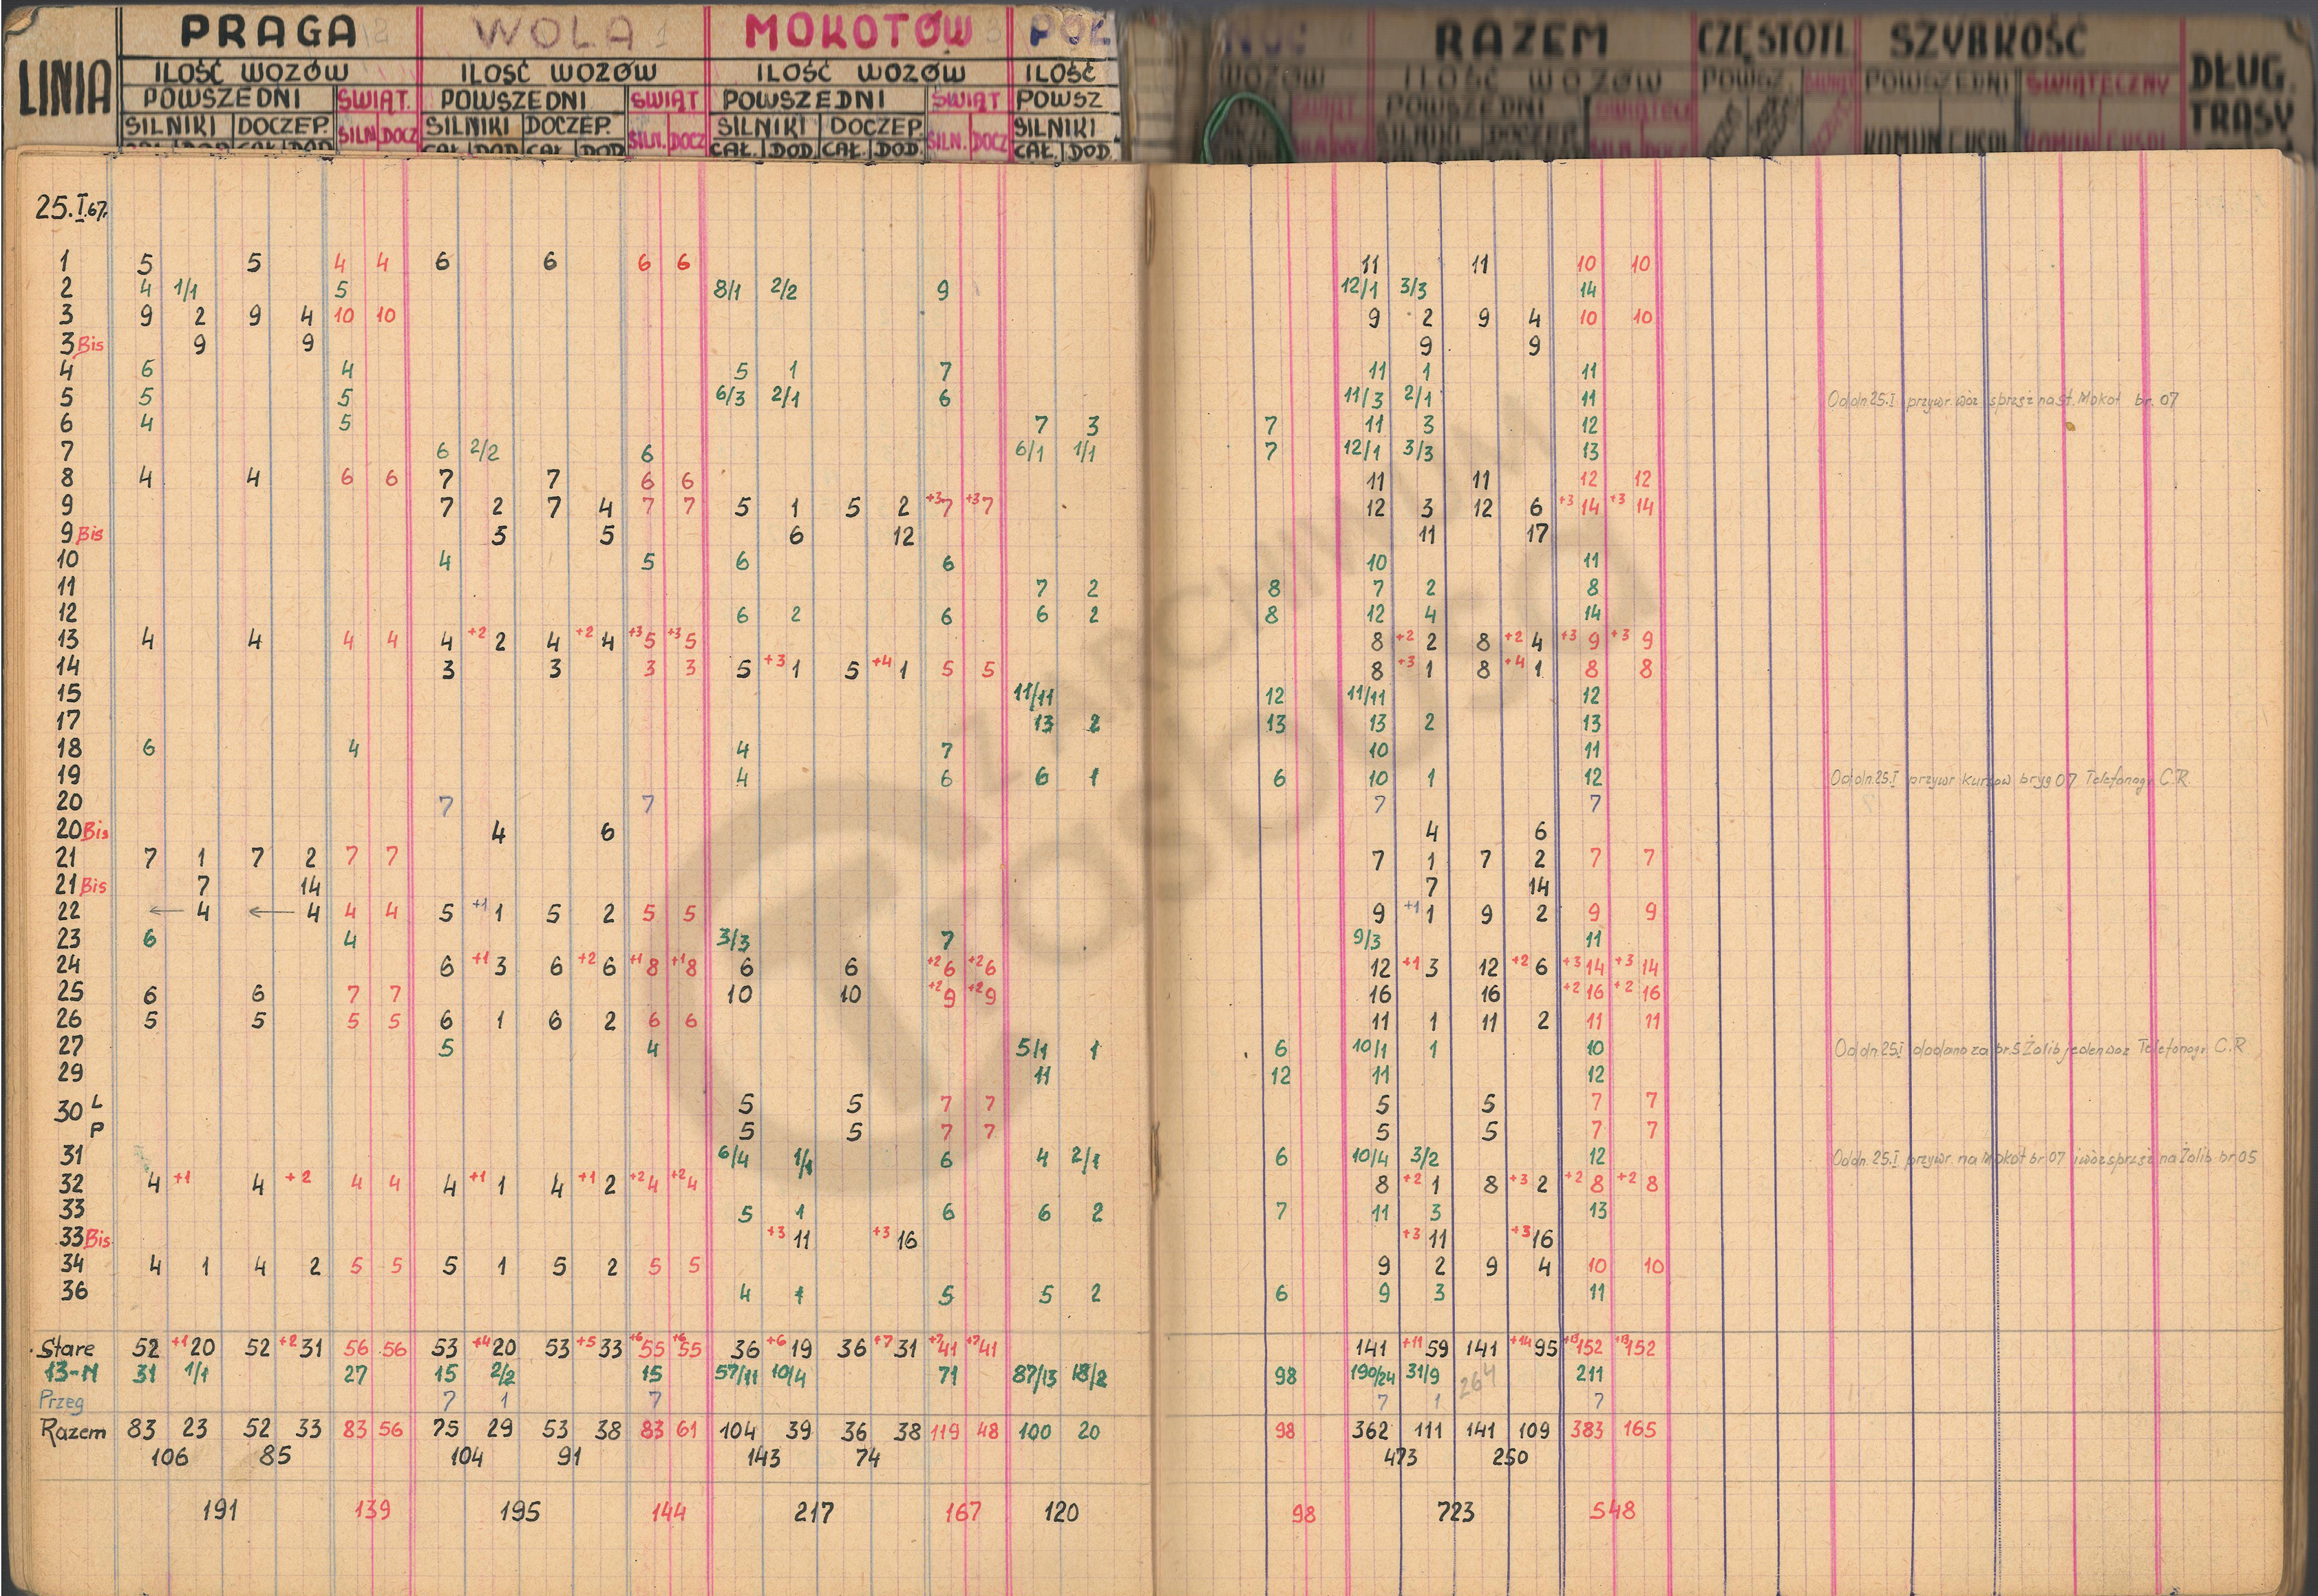 LINIA PRAGA 2 WOLA 1 MOKOTÓW 3 PÓŁ NOC RAZEM CZĘSTOTL. SZYBKOŚĆ DŁUG. TRASY
ILOŚĆ WOZÓW ILOŚĆ WOZÓW ILOŚĆ WOZÓW ILOŚĆ WOZÓW ILOŚĆ WOZÓW POWSZ. ŚWIĄT POWSZEDNI ŚWIĄTECZNY
POWSZEDNI ŚWIĄT. POWSZEDNI ŚWIĄT POWSZEDNI ŚWIĄT POWSZ POWSZEDNI
SILNIKI DOCZEP. SILN DOCZ SILNIKI DOCZEP. SILN. DOCZ SILNIKI DOCZEP. SILN. DOCZ SILNIKI SILNIKI DOCZEP KOMUN
CAŁ. DOD. CAŁ. DOD CAŁ. DOD. CAŁ. DOD. CAŁ. DOD. CAŁ. DOD. CAŁ. DOD.
25.I.67.
1 5 5 4 4 6 6 6 6 11 11 10 10
2 4 1/1 5 8/1 2/2 9 12/1 3/3 14
3 9 2 9 4 10 10 9 2 9 4 10 10
3 Bis 9 9 9 9
4 6 4 5 1 7 11 1 11
5 5 5 6/3 2/1 6 11/3 2/1 11 Od dn. 25.I przywr. wóz sprzęż na st. Mokot br. 07
6 4 5 7 3 7 11 3 12
7 6 2/2 6 6/1 1/1 7 12/1 3/3 13
8 4 4 6 6 7 7 6 6 11 11 12 12
9 7 2 7 4 7 7 5 1 5 2 +3 7 +3 7 12 3 12 6 +3 14 +3 14
9 Bis 5 5 6 12 11 17
10 4 5 6 6 10 11
11 7 2 8 7 2 8
12 6 2 6 6 2 8 12 4 14
13 4 4 4 4 4 +2 2 4 +2 4 +3 5 +3 5 8 +2 2 8 +2 4 +3 9 +3 9
14 3 3 3 3 5 +3 1 5 +4 1 5 5 8 +3 1 8 +4 1 8 8
15 11/11 12 11/11 12
17 13 2 13 13 2 13
18 6 4 4 7 10 11
19 4 6 6 1 6 10 1 12 Od dn. 25.I przywr kursow bryg 07 Telefonogr. C.R.
20 7 7 7 7
20 Bis 4 6 4 6
21 7 1 7 2 7 7 7 1 7 2 7 7
21 Bis 7 14 7 14
22 ← 4 ← 4 4 4 5 +1 1 5 2 5 5 9 +1 1 9 2 9 9
23 6 4 3/3 7 9/3 11
24 6 +1 3 6 +2 6 +1 8 +1 8 6 6 +2 6 +2 6 12 +1 3 12 +2 6 +3 14 +3 14
25 6 6 7 7 10 10 +2 9 +2 9 16 16 +2 16 +2 16
26 5 5 5 5 6 1 6 2 6 6 11 1 11 2 11 11
27 5 4 5/1 1 6 10/1 1 10 Od dn. 25.I dodano za br. 5 Żolib jeden wóz Telefonogr. C.R
29 11 12 11 12
30 L 5 5 7 7 5 5 7 7
P 5 5 7 7 5 5 7 7
31 6/4 1/1 6 4 2/1 6 10/4 3/2 12 Od dn. 25.I przywr. na Mokot br 07 i wóz sprzęż na Żolib br 05
32 4 +1 4 +2 4 4 4 +1 1 4 +1 2 +2 4 +2 4 8 +2 1 8 +3 2 +2 8 +2 8
33 5 1 6 6 2 7 11 3 13
33 Bis +3 11 +3 16 +3 11 +3 16
34 4 1 4 2 5 5 5 1 5 2 5 5 9 2 9 4 10 10
36 4 1 5 5 2 6 9 3 11
Stare 52 +1 20 52 +2 31 56 56 53 +4 20 53 +5 33 +6 55 +6 55 36 +6 19 36 +7 31 +7 41 +7 41 141 +11 59 141 +14 95 +13 152 +13 152
13-N 31 1/1 27 15 2/2 15 57/11 10/4 71 87/13 18/2 98 190/24 31/9 211
Przeg 7 1 7 7 1 264 7
Razem 83 23 52 33 83 56 75 29 53 38 83 61 104 39 36 38 119 48 100 20 98 362 111 141 109 383 165
106 85 104 91 143 74 473 250
191 139 195 144 217 167 120 98 723 548